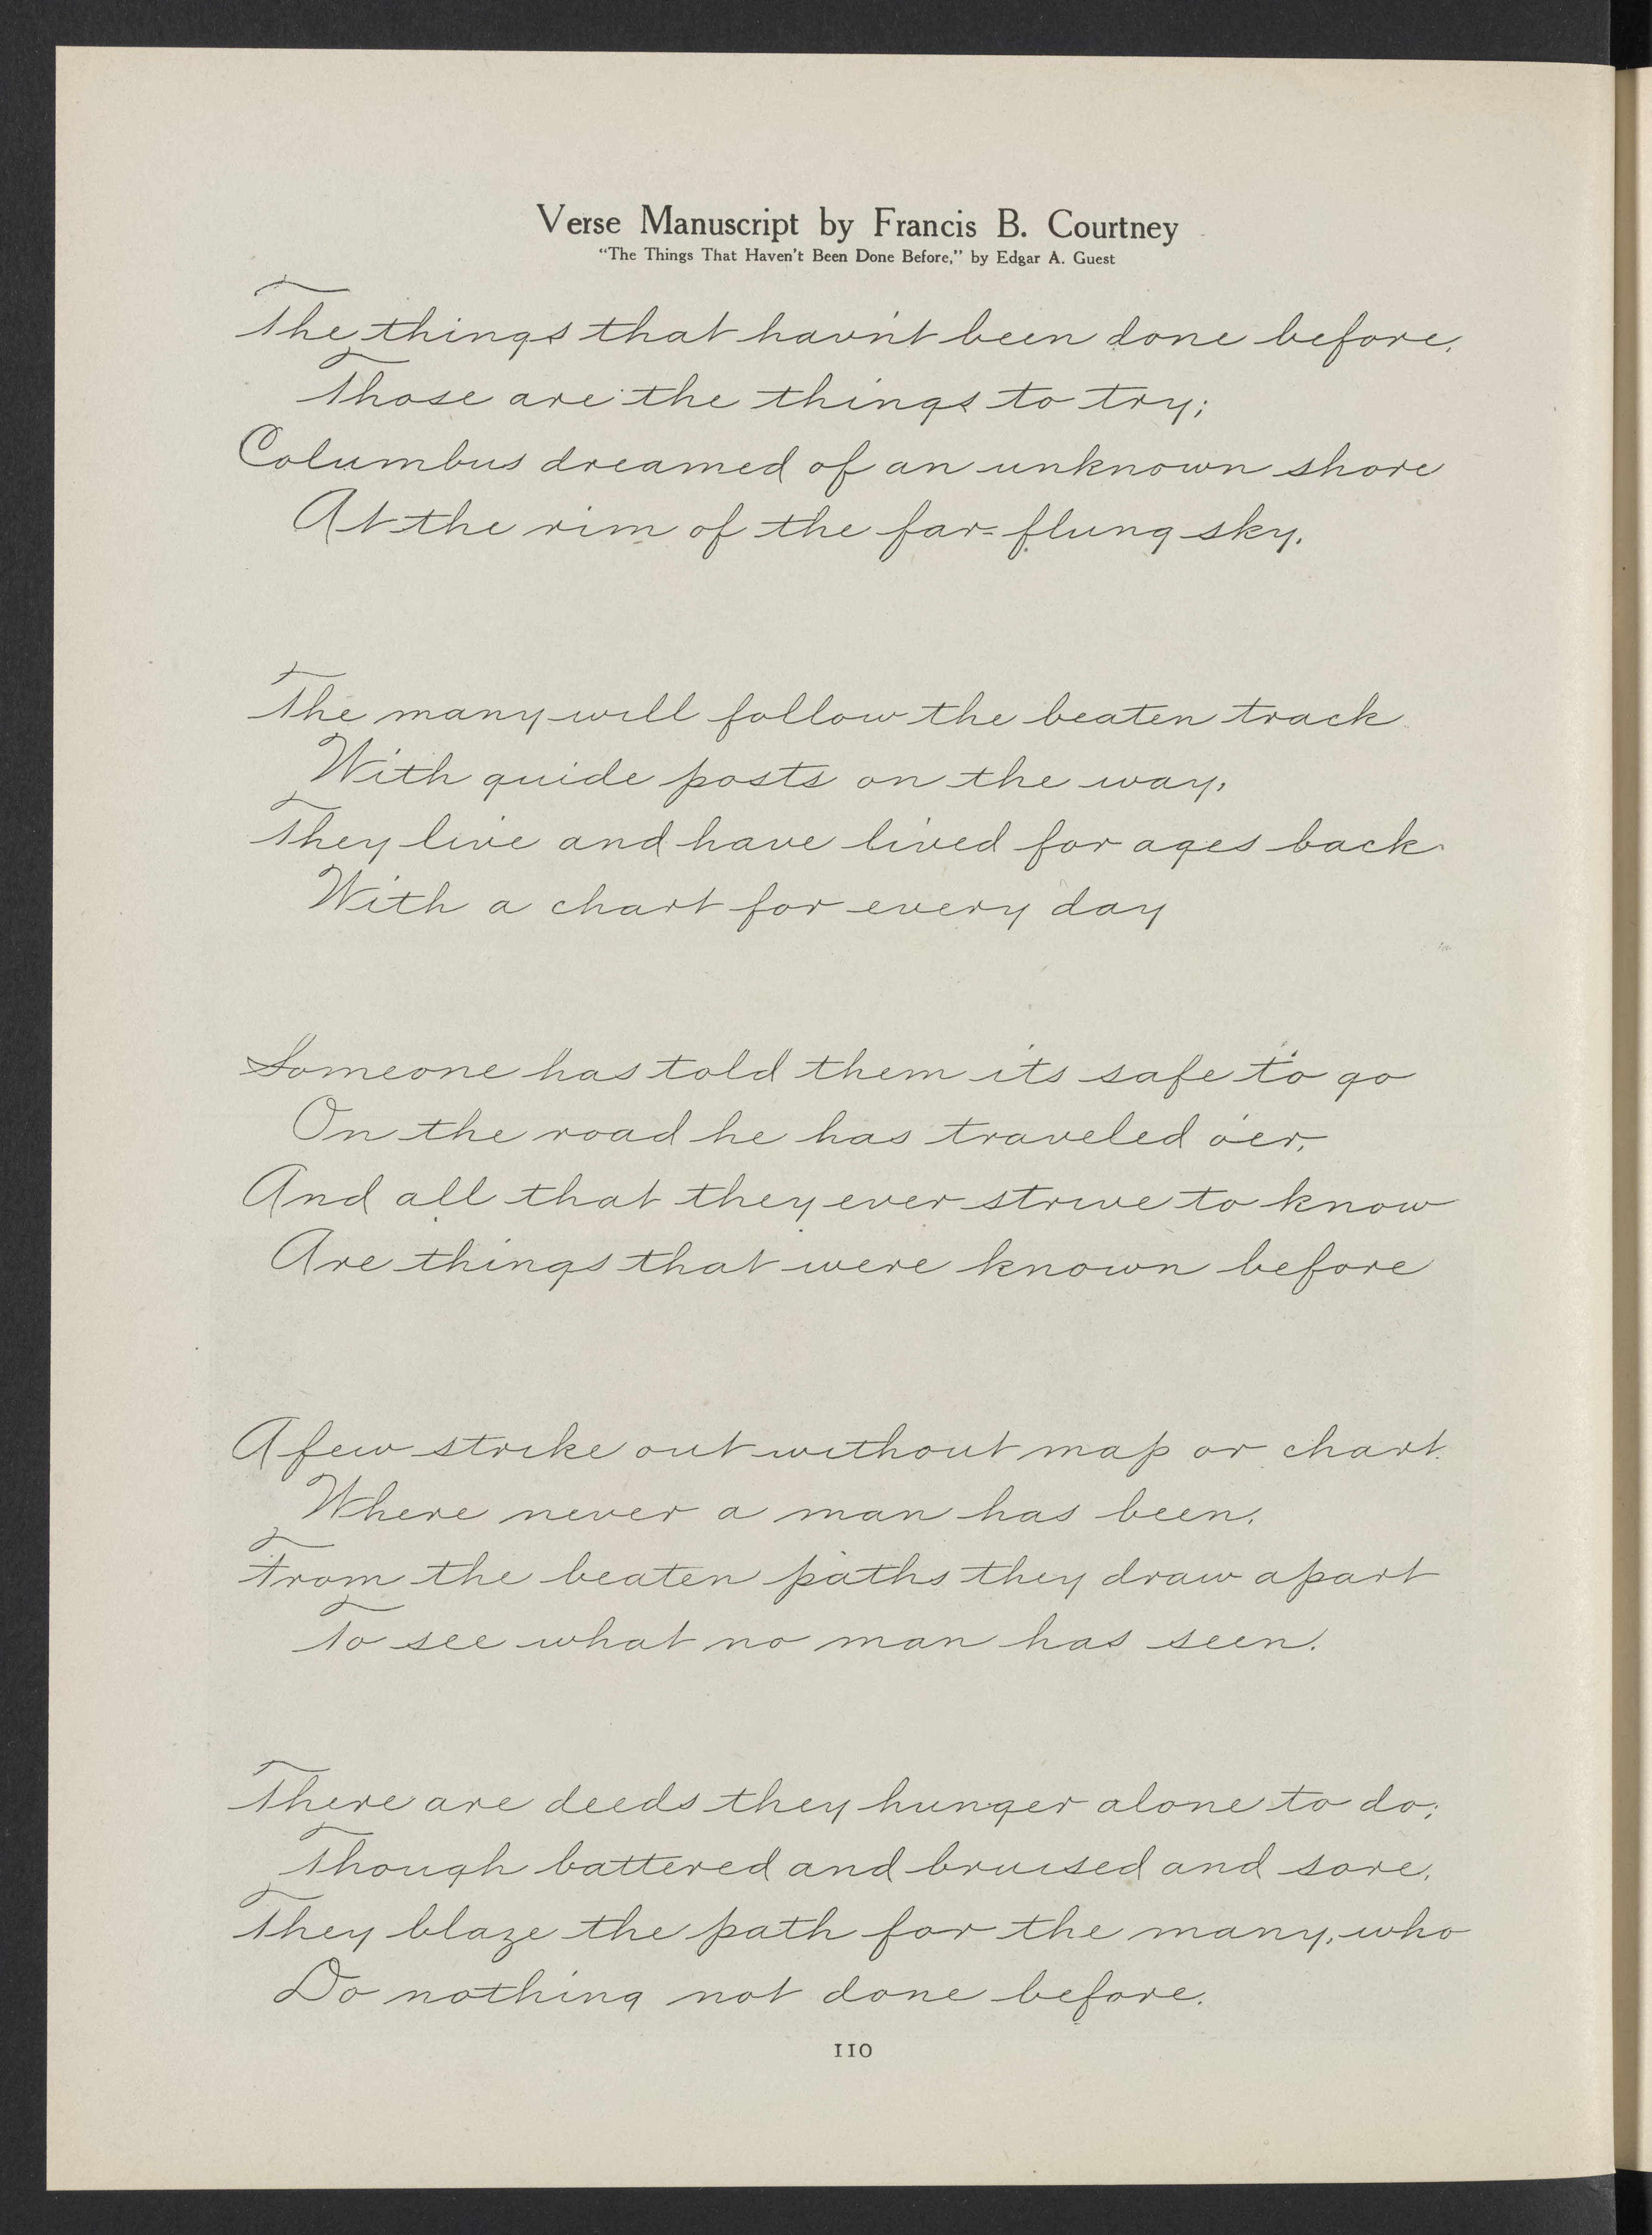 Verse Manuscript by Francis B. Courtney
“The Things That Haven't Been Done Before,” by Edgar A. Guest
The things that havn't been done before,
Those are the things to try;
Columbus dreamed of an unknown shore
At the rim of the far=flung sky.
The many will follow the beaten track
With guide posts on the way,
They live and have lived for ages back
With a chart for every day
Someone has told them its safe to go
On the road he has traveled o'er,
And all that they ever strive to know
Are things that were known before
A few strike out without map or chart.
Where never a man has been.
From the beaten paths they draw apart
To see what no man has seen.
There are deeds they hunger alone to do;
Though battered and bruised and sore,
They blaze the path for the many, who
Do nothing not done before.
110